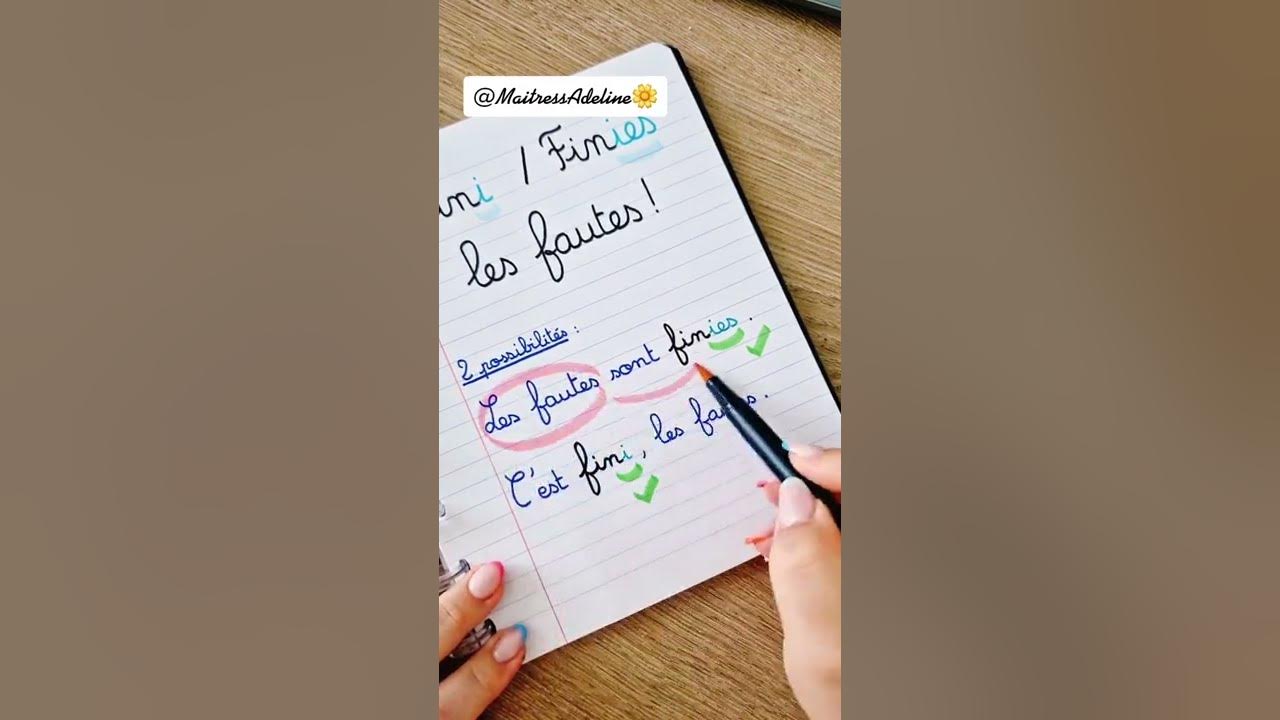 @MaitressAdeline🌼
ini / Finies
les fautes !
2 possibilités :
Les fautes sont finies .
C'est fini , les fautes .